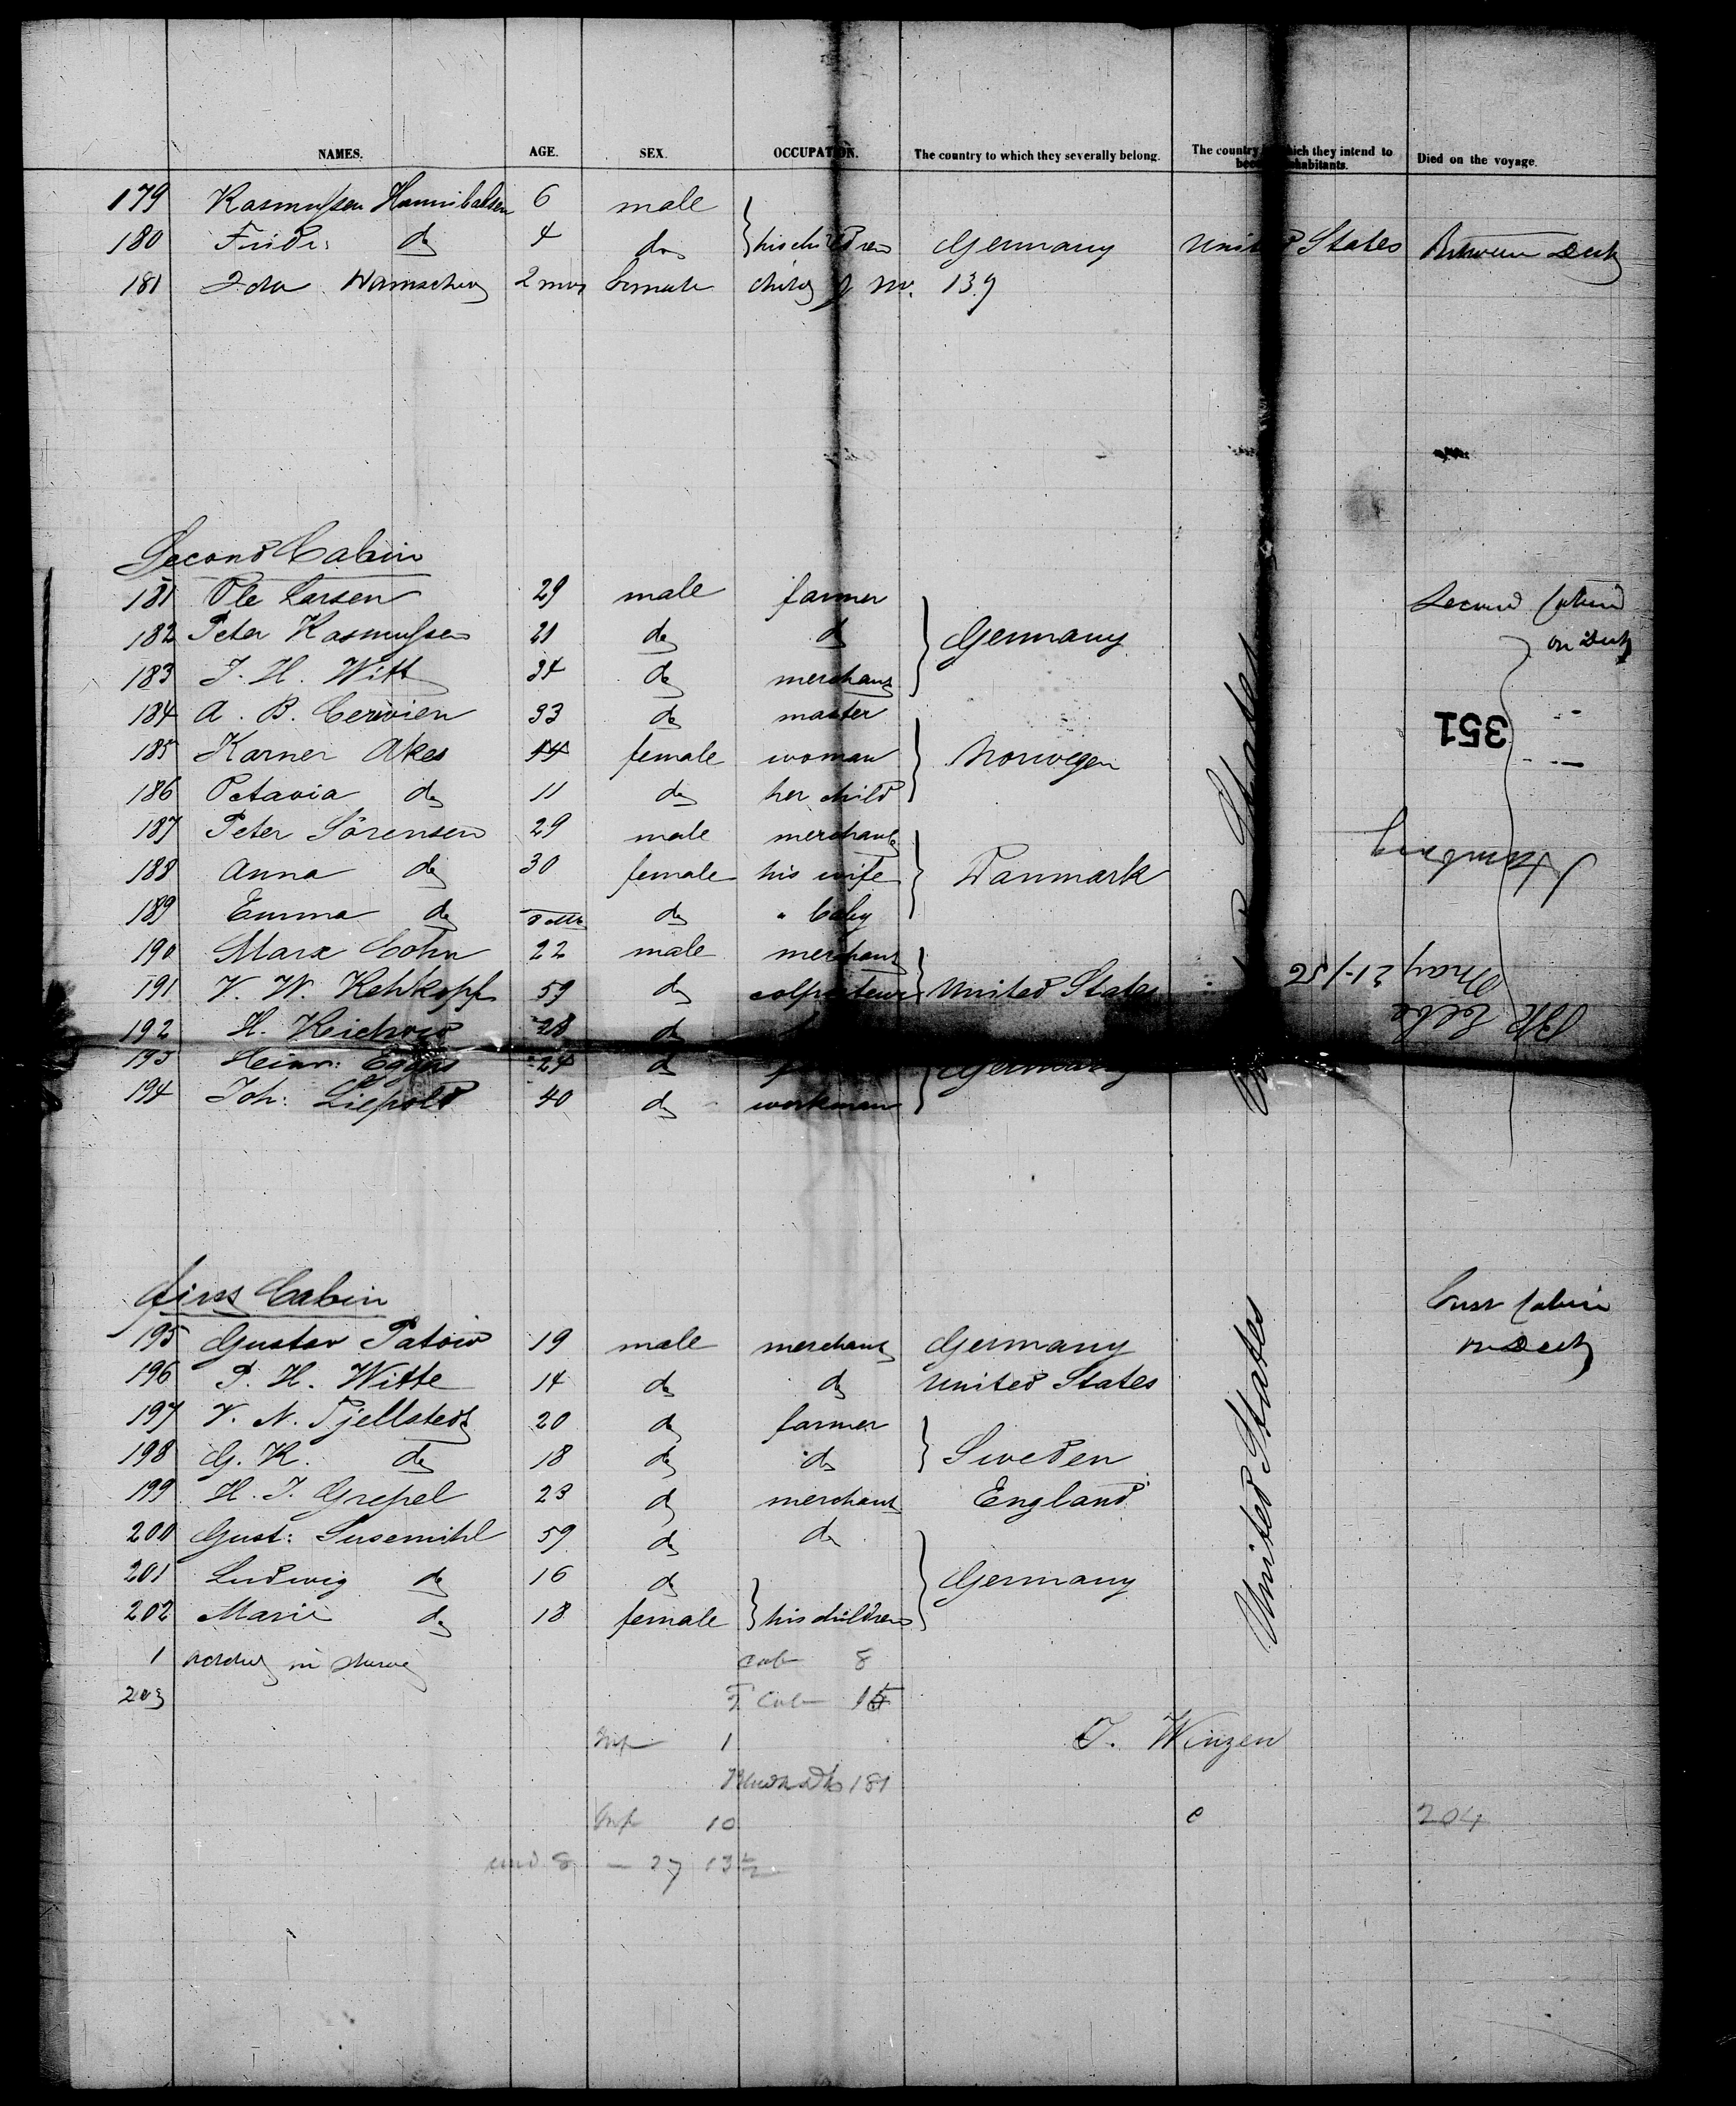 NAMES. AGE. SEX. OCCUPATION. The country to which they severally belong. The country which they intend to inhabitants. Died on the voyage.
179 Rasmussen Hannibalsen 6 male
180 Fridr: do 4 do his children Germany United States Between Deck
181 Ida 2 mos female child of No. 139
Second Cabin
181 Ole Larsen 29 male farmer Second Cabin
182 Peter Rasmussen 21 do do Germany on Deck
183 J. H. Witt 34 do merchant
184 A. B. Cerwien 33 do master 351
185 Karner Akes 44 female woman Norwegen
186 Octavia do 11 do her child
187 Peter Sörensen 29 male merchant
188 Anna do 30 female his wife Danmark
189 Emma do do " baby
190 Marx Cohn 22 male merchant
191 V. W. Kehkopf 59 do colporteur United States
192 H. Reichow 28 do
193 Heinr: Eggers 24 do Germany
194 Joh: Liepold 40 do workman
States
Hamburg
May 21-/56
BK Elbe
First Cabin
First Cabin
195 Gustav Patow 19 male merchant Germany on Deck
196 P. H. Witte 14 do do United States
197 V. N. Fjellstedt 20 do farmer
198 G. K. do 18 do do Sweden
199 H. J. Grepel 23 do merchant England
200 Gust: Susemihl 59 do do
201 Ludwig do 16 do Germany
202 Marie do 18 female his children
United States
1 added in
203
cab 8
2 cab 15
Inf 1
J. Winzen
181
Inf 10
204
und 8 — 27 13